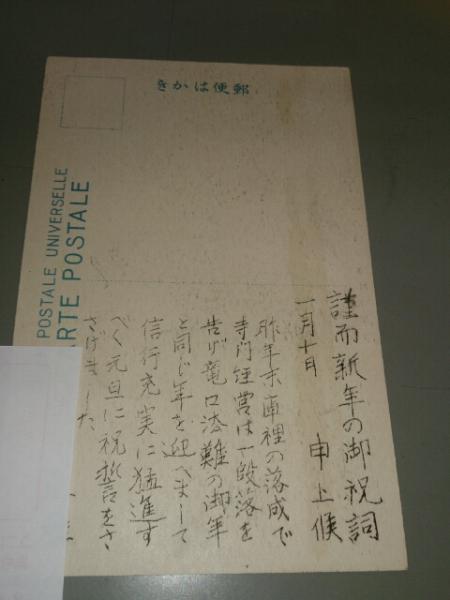 きかは便郵
UNION POSTALE UNIVERSELLE
CARTE POSTALE
謹而新年の御祝詞
申上候
一月十日
昨年末庫裡の落成で
寺門経営は一段落を
告げ竜口法難の御年
と同じ年を迎へまして
信行充実に猛進す
べく元旦に祝誓をさ
さげました